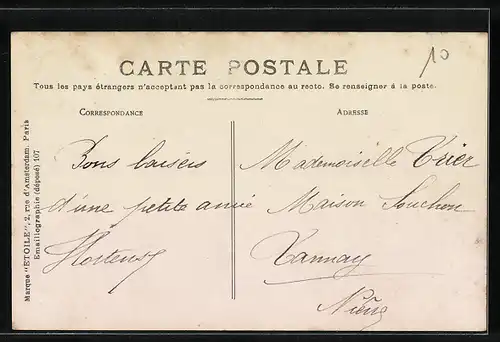 10
CARTE POSTALE
Tous les pays étrangers n'acceptant pas la correspondance au recto. Se renseigner à la poste.
CORRESPONDANCE
ADRESSE
Marque "ETOILE", 2, rue d'Amsterdam, Paris
Emaillographie (déposé) 107
Bons baisers
d'une petite amie
Hortense
Mademoiselle Trier
Maison Souchon
Tannay
Nièvre